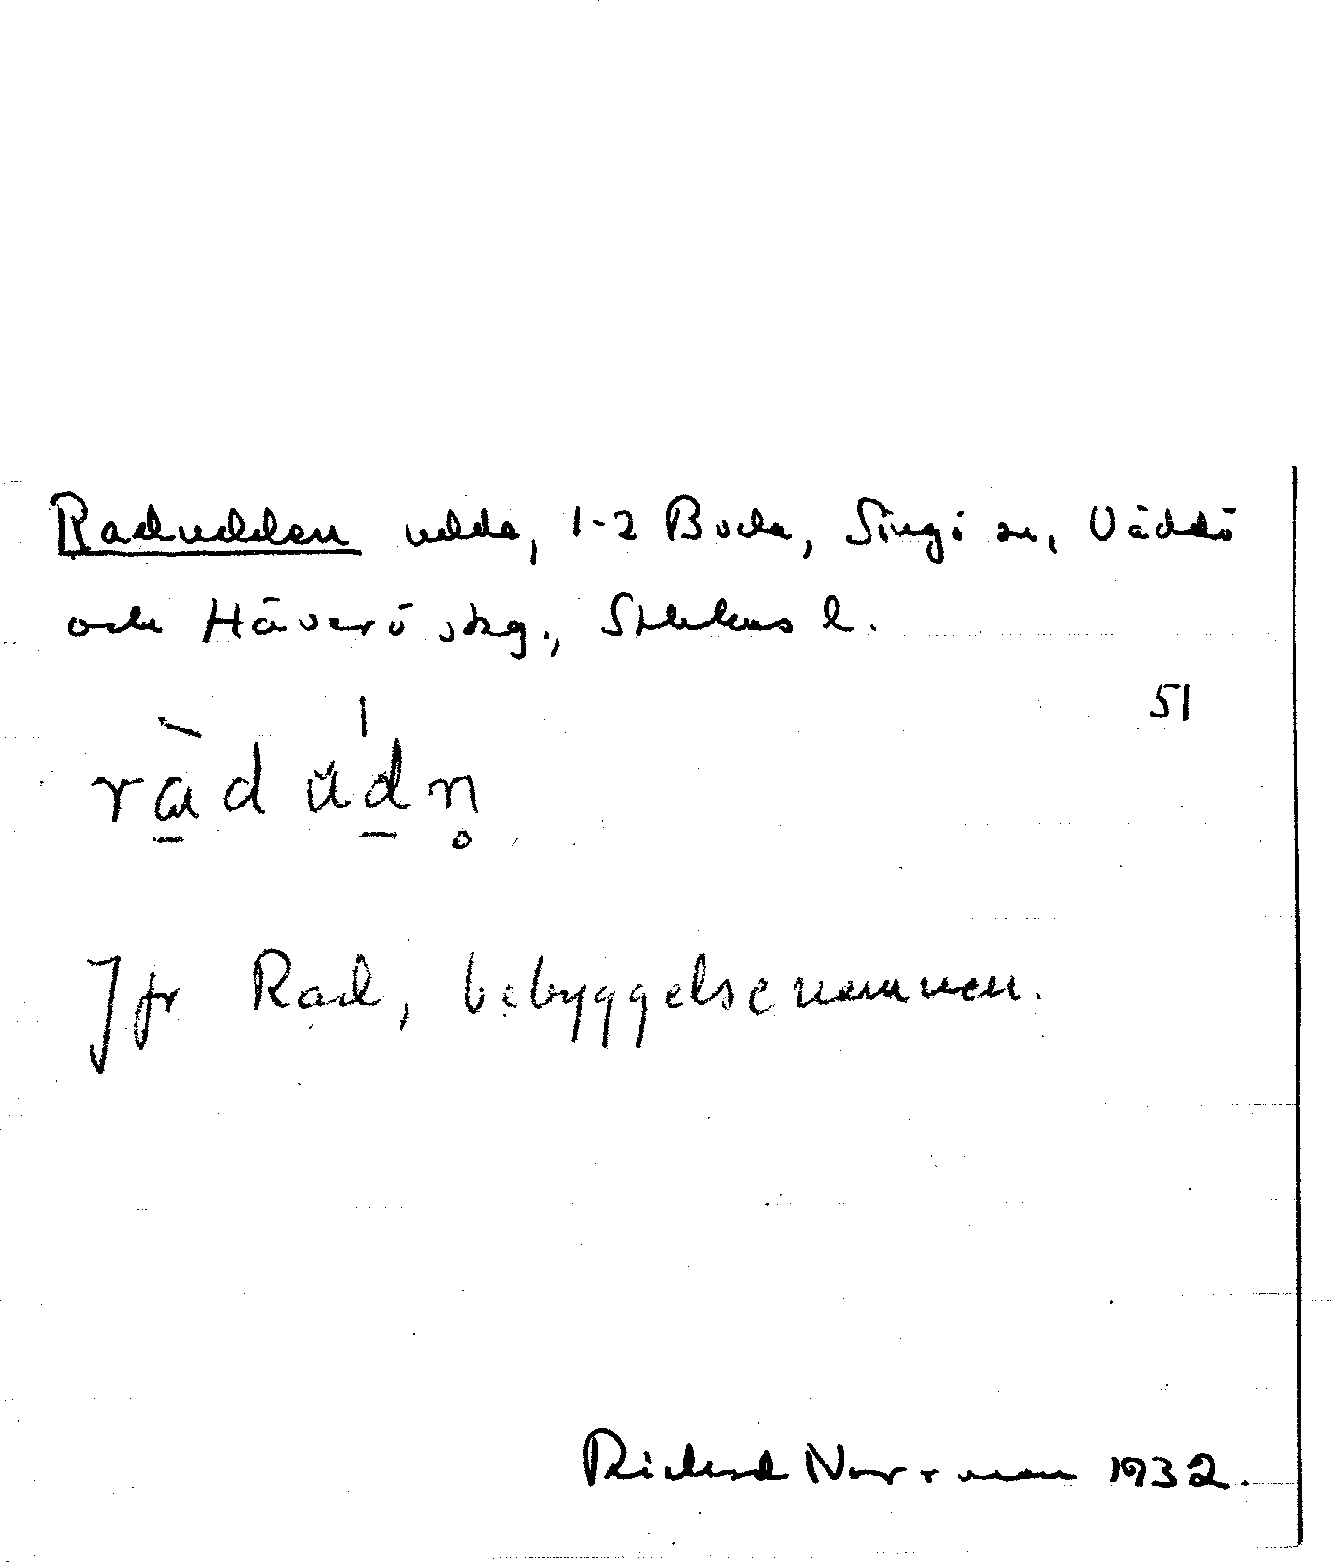 Radudden udde, 1-2 Boda, Singö sn, Väddö
och Häverö skg., Sthlms l.
51
ràd ŭdn̥
Jfr Rad, bebyggelsenamnen.
Richard Norrman 1932.